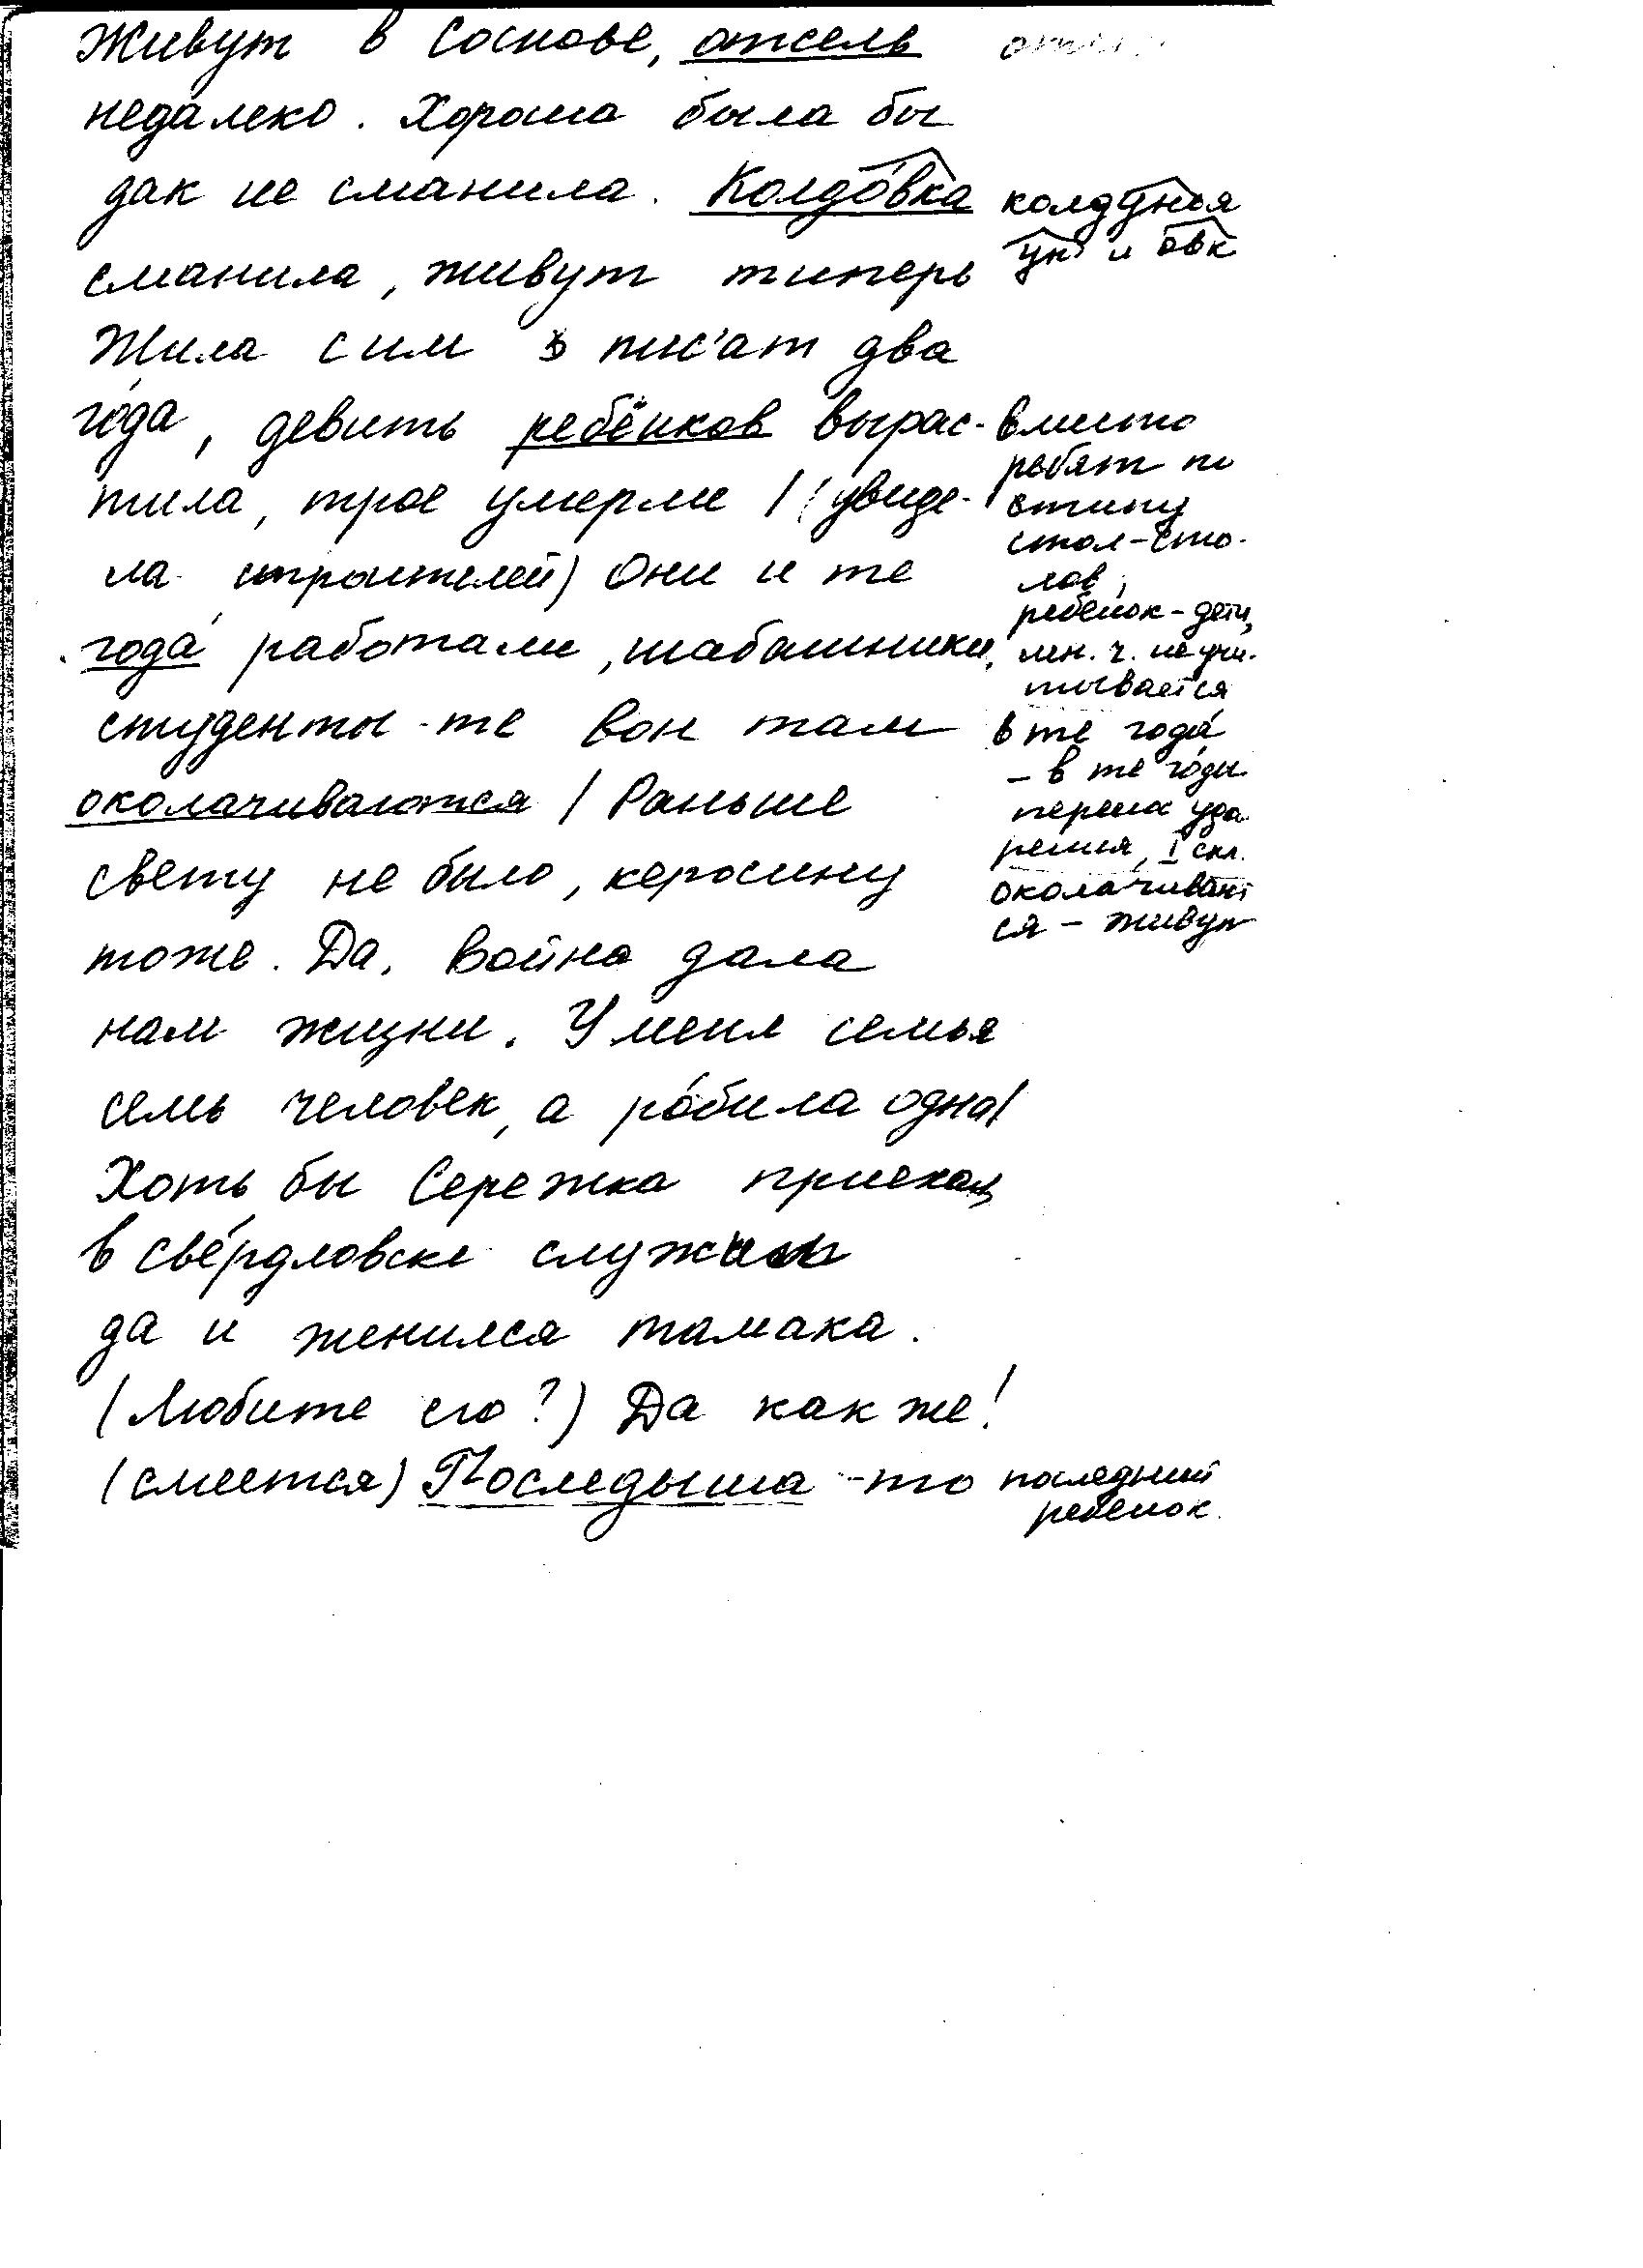 Живут в Соснове, отсель
недалеко. Хороша была бы
дак не сманила. Колдо́вка
сманила, живут типерь
Жила с им пис'ат два
го́да, девить ребёнков вырас-
тила, трое умерли / (увиде-
ла строителей) Они и те
года́ работали, шабашники,
студенты-те вон там
околачиваются / Раньше
свету не было, керосину
тоже. Да, война дала
нам жизни. У меня семья
семь человек, а ро́била одна/
Хоть бы Сережка приехал,
в све́рдловске служил
да и женился тамака.
(Любите его?) Да как же!
(смеется) Последыша-то
колдунья
ун и овк
вместо
ребят по
типу
стол-сто-
лов,
ребенок-дети,
мн. ч. не учи-
тывается
в те года́
- в те го́ды
перенос уда
рения, I скл.
околачивают
ся - живут
последний
ребенок.